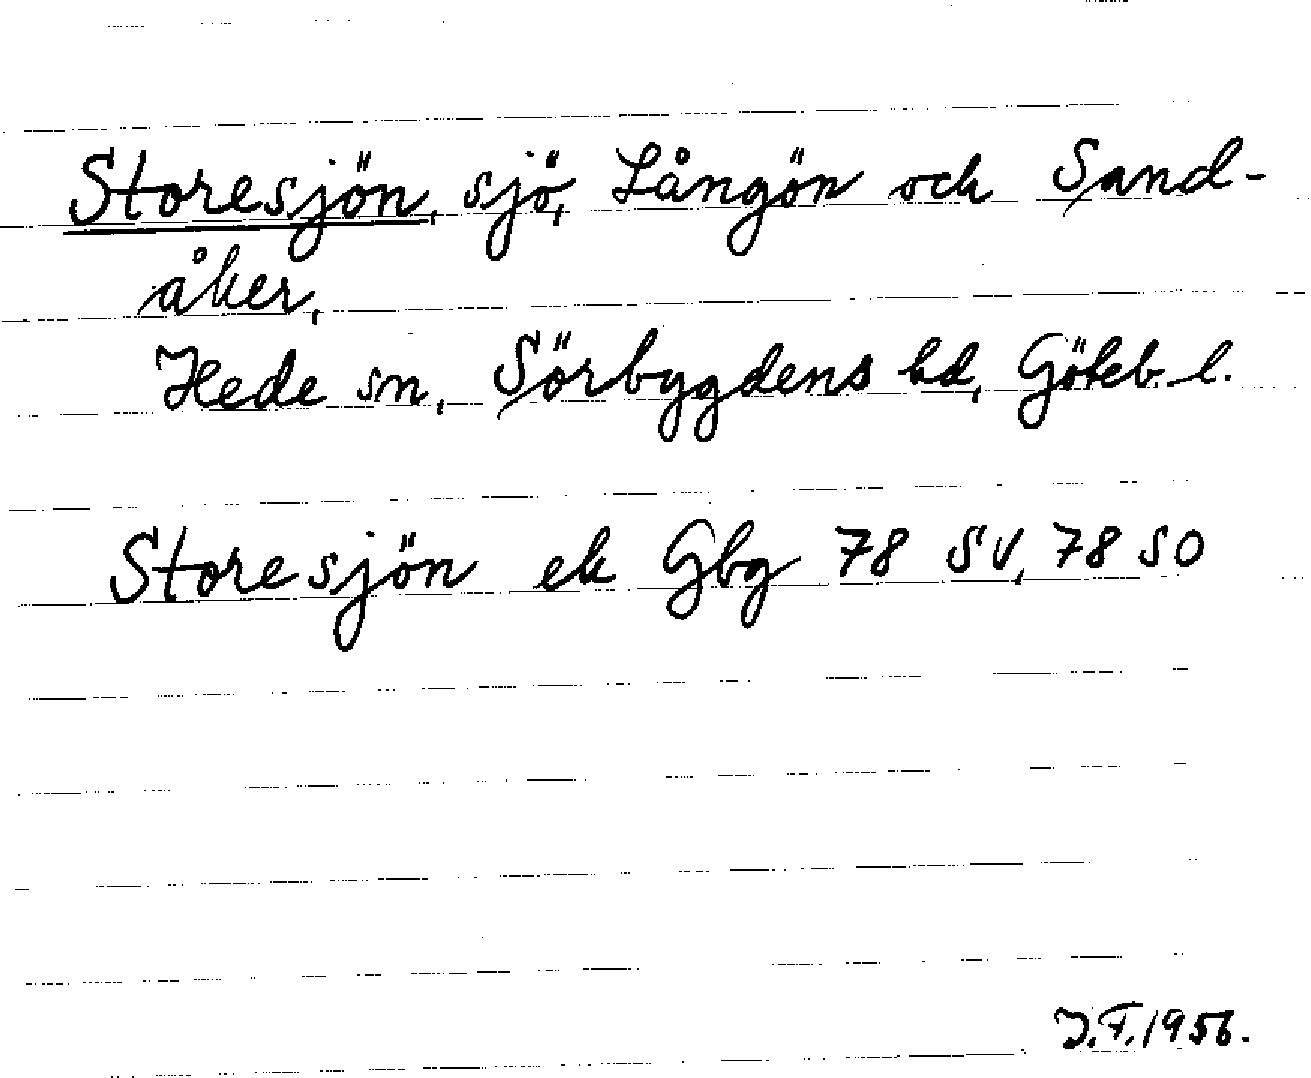 Storesjön, sjö, Långön och Sand-
åker,
Hede sn, Sörbygdens hd, Göteb. l.
Storesjön ek Gbg 78 SV, 78 SO
J.F. 1956.